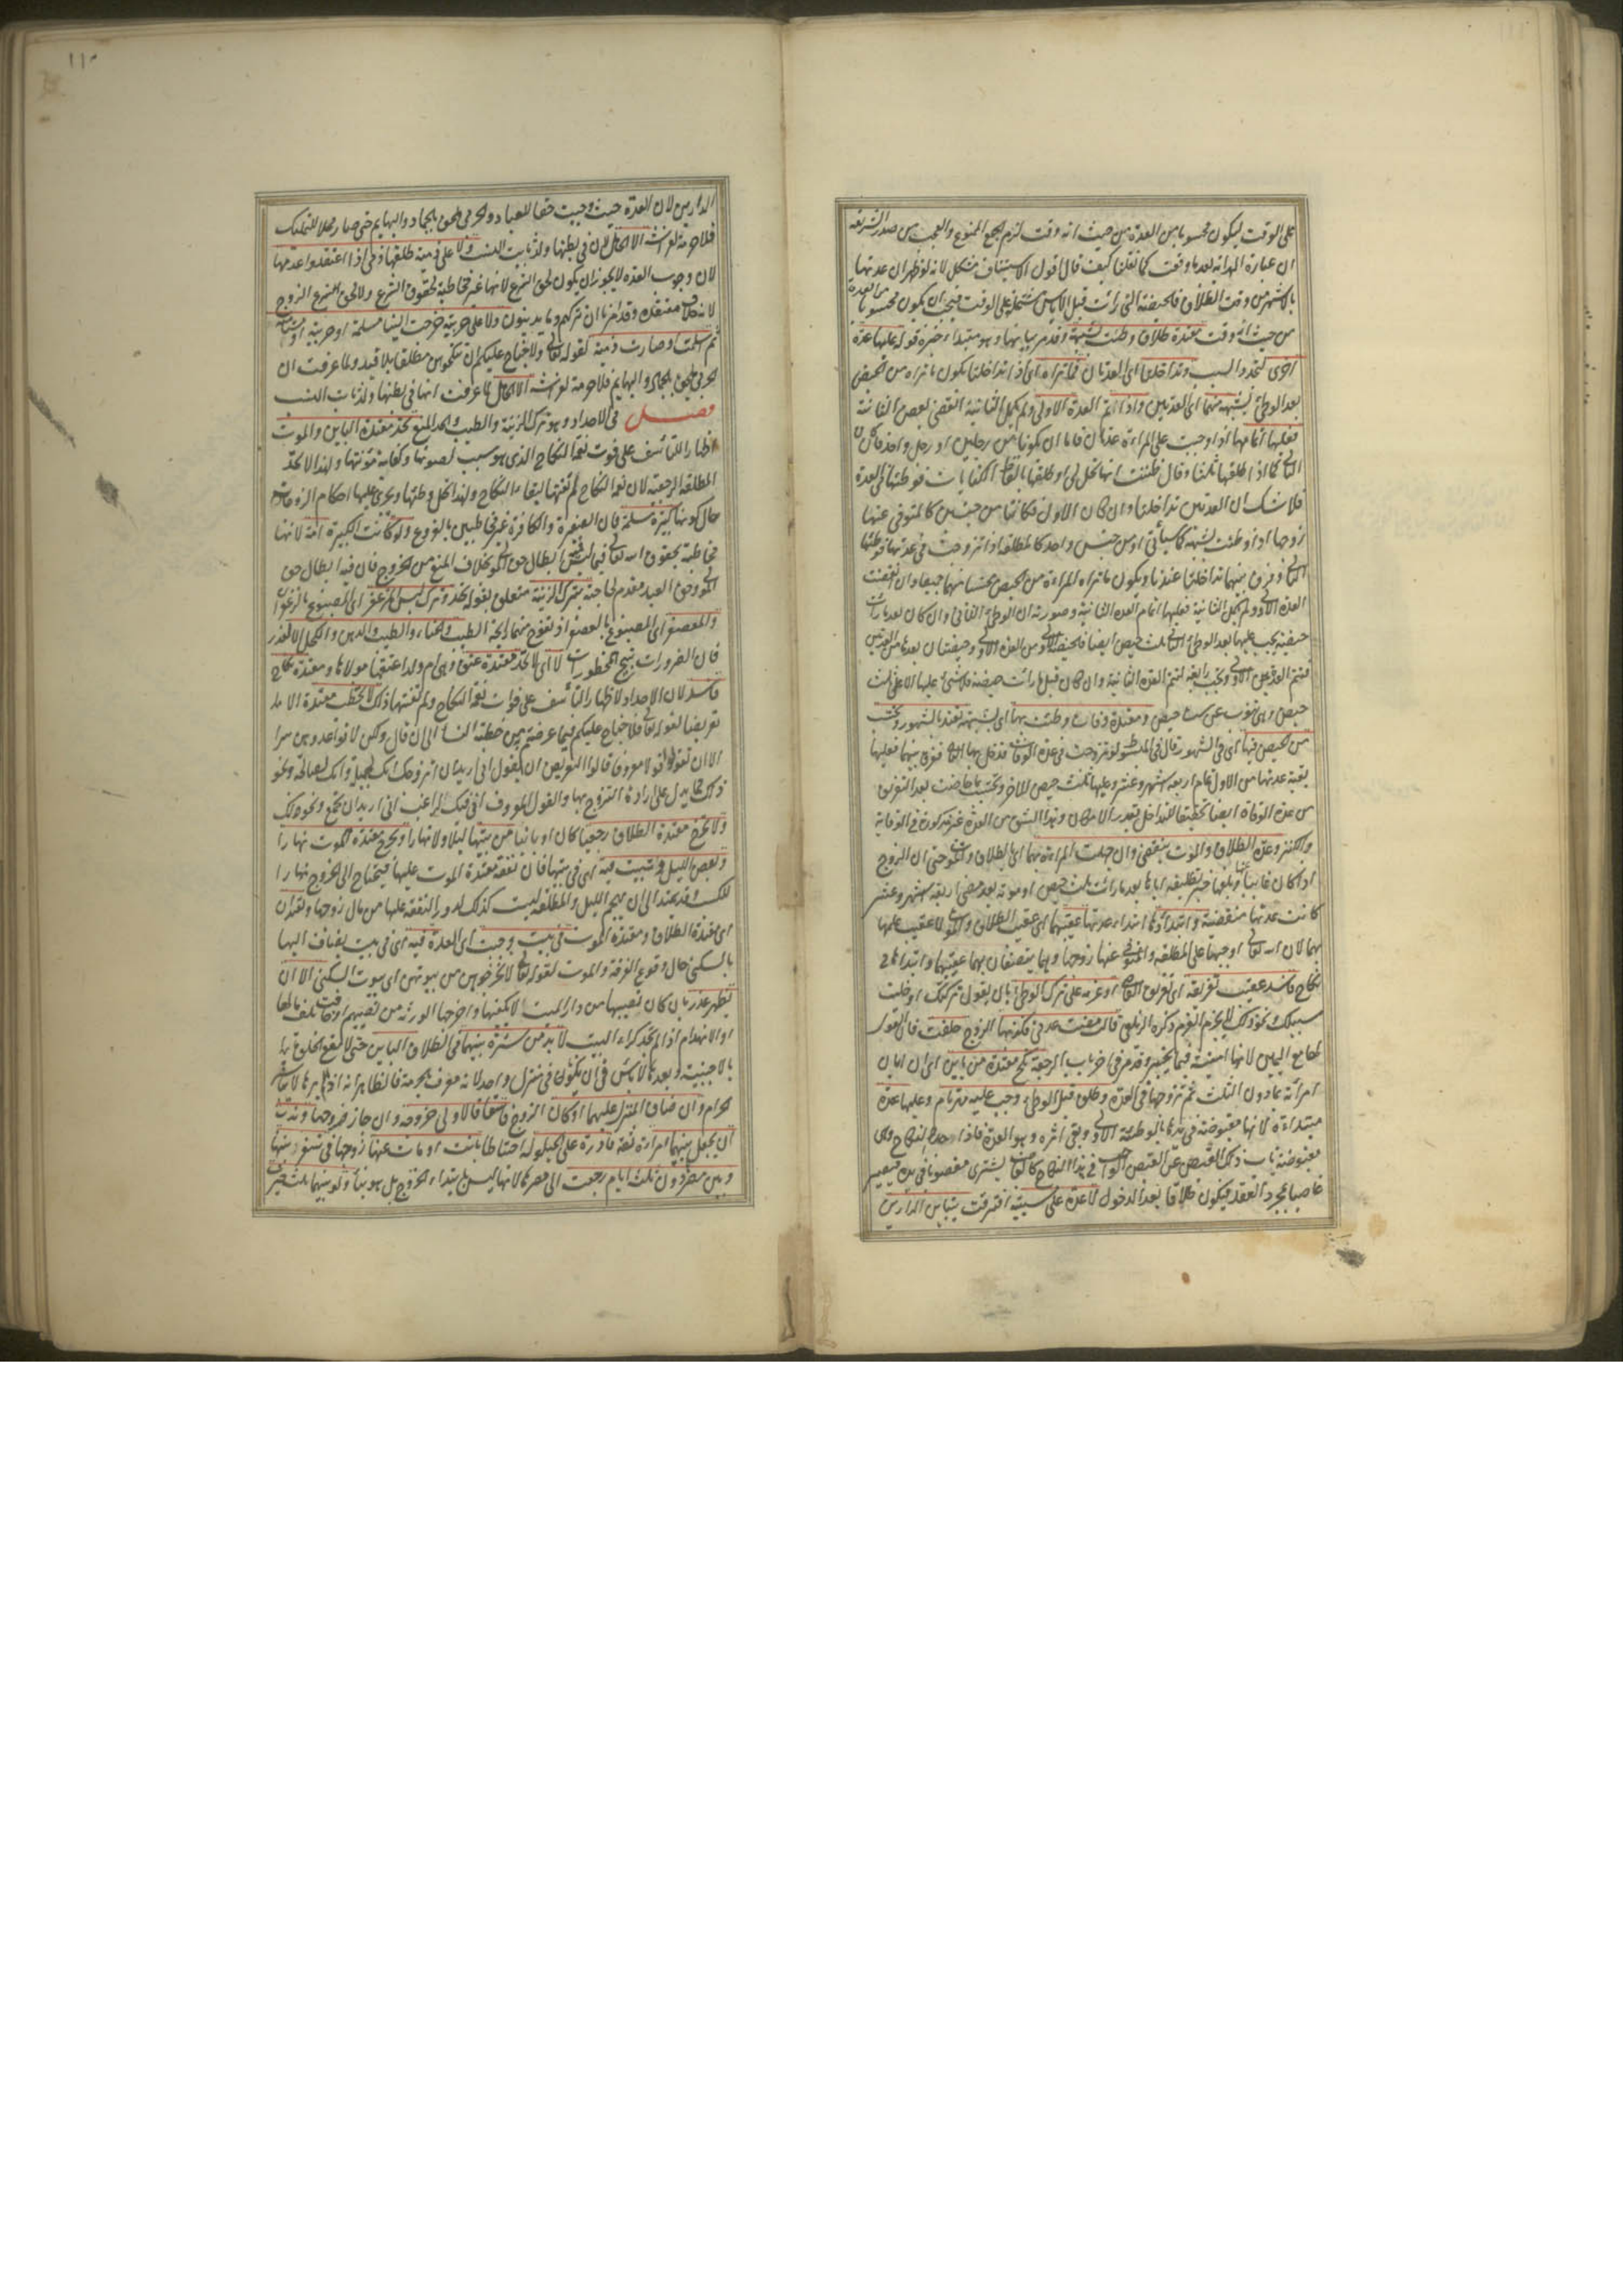 على الوقت ليكون محسوبا من العدة من حيث انه وقت لزم الجمع الممنوع والعجب من صدر الشريعة
ان عبارة الهداية بعدما وقعت كما نقلنا كيف قال قول الاستيناف مشكل لانه لو ظهر ان عدتها
بالاشهر من وقت الطلاق فالحيضة التي رأت قبل الاياس مشتملة على الوقت فيجب ان يكون محسوبا من العدة
من حيث انه وقت معتدة طلاق وطئت بشبهة وقد مر بيانها وهو مبتداء خبره قوله عليها عدة
اخرى لتجدد السبب وتداخلتا اى العدتان فما تراه اى اذا تداخلتا يكون ما تراه من الحيض
بعد الوطئ بشبهة منهما اى العدتين واذا تم العدة الاولى ولم يكمل الثانية انقضى بعض الثانية
فعليها اتمامها اذا وجبت على المراءة عدتان فاما ان يكونا من رجلين او رجل واحد فان كان
الثانى كما اذا طلقها ثلثا وقال ظننت انها تحل لى او طلقها بالفاظ الكنايات فوطئها فى العدة
فلا شك ان العدتين تداخلتا وان كان الاول فكانتا من جنسين كالمتوفى عنها
زوجها اذا وطئت بشبهة كما سيأتى او من جنس واحد كالمطلقة اذا تزوجت فى عدتها فوطئها
الثانى وفرق بينهما تداخلتا عندنا ويكون ما تراه المراءة من الحيض محتسبا منهما جميعا وان انقضت
العدة الاولى ولم تكمل الثانية فعليها اتمام العدة الثانية وصورته ان الوطئ الثانى وان كان بعد ما رأت
حيضة يجب عليها بعد الوطئ الثانى ثلث حيض ايضا فالحيضة الاولى من العدة الاولى وحيضتان بعدها من العدتين
فتتم العدة الاولى وتجب رابعة لتتم العدة الثانية وان كان قبل ما رأت حيضة فلا شئ عليها الا على ثلث
حيض وهى تنوب عن ست حيض ومعتدة وفات وطئت بها اى بشبهة تعتد بالشهور وتحتسب
من الحيض فيها اى فى الشهور قال فى المبسوط لو تزوجت فى عدة الوفات فدخل بها الثانى ففرق بينهما فعليها
بقية عدتها من الاول تمام اربعة اشهر وعشر وعليها ثلث حيض للاخر وتحتسب بما حاضت بعد التفريق
من عدة الوفاة ايضا تحقيقا للتداخل بقدر الامكان وهذا الشق من العدة غير مذكورة فى الوقاية
والكنز وعدة الطلاق والموت ينقضى وان جهلت المراءة بهما اى بالطلاق والموت حتى ان الزوج
اذا كان غائبا عنها وبلغها خبر تطليقه اياها بعد ما رأت ثلث حيض او موته بعد مضى اربعة اشهر وعشر
كانت عدتها منقضية وابتداؤها ابتداء عدتها عقيبهما اى عقيب الطلاق والموت لا عقيب علمها
بهما لان الله تعالى اوجبها على المطلقة والمتوفى عنها زوجها وهما يتصفان بهما عقيبهما وابتداءها فى
نكاح فاسد عقيب تفريقه اى تفريق القاضى او عزمه على ترك الوطئ بان يقول تركتك او خليت
سبيلك ونحو ذلك لا مجرد العزم ذكره الزيلعى قالت مضت عدتى فكذبها الزوج حلفت فان القول
لها مع اليمين لانها امينة فيما تخبر وقد مر فى اخر باب الرجعة نكح معتدة من باين اى ان ابان
امرأته بما دون الثلث ثم تزوجها فى العدة وطلق قبل الوطئ وجب عليه مهر تام وعليها عدة
مبتداءة لانها مقبوضة فى يده بالوطئة الاولى وبقى اثره وهو العدة فاذا جدد النكاح وهى
مقبوضة ناب ذلك القبض عن القبض الواجب فى هذا النكاح كالغاصب يشترى مغصوبا فى يده فيصير
قابضا بمجرد العقد فيكون طلاقا بعد الدخول لا عدة على مسبية افترقت بتباين الدارين
الدارين لان العدة حيث وجبت حقا للعباد والحربى ملحق بالجماد والبهايم حتى صار محلا للتملك
فلا حرمة لفراشه الا الحامل لان فى بطنها ولد ثابت النسب ولا على ذمية طلقها ذمى اذا اعتقدوا عدمها
لان وجوب العدة لا يجوز ان يكون لحق الشرع لانها غير مخاطبة بحقوق الشرع ولا لحق الزوج
لانه خلاف معتقده وقد امرنا ان نتركهم وما يدينون ولا على حربية خرجت الينا مسلمة او حربية او مستأمنة
ثم اسلمت وصارت ذمية لقوله تعالى ولا جناح عليكم ان تنكحوهن مطلقا بلا قيد ولما عرفت ان
الحربى ملحق بالجماد والبهايم فلا حرمة لفراشه الا الحامل لما عرفت انها فى بطنها ولد ثابت النسب
فصل فى الاحداد وهو ترك الزينة والطيب والحد المنع تحد معتدة الباين والموت
اظهارا للتأسف على فوت نعمة النكاح الذى هو سبب لصونها وكفاية مؤنتها ولهذا لا تحد
المطلقة الرجعية لان نعمة النكاح لم تفتها لبقاء النكاح ولهذا تحل وطئها ويجرى عليها احكام الزوجات
حال كونها كبيرة مسلمة فان الصغيرة والكافرة غير مخاطبين بالفروع ولو كانت الكبيرة امة لانها
مخاطبة بحقوق الله تعالى فيما ليس فيه ابطال حق المولى بخلاف المنع من الخروج فان فيه ابطال حق
المولى وحق العبد مقدم لحاجته بترك الزينة متعلق بقوله تحد وترك لبس المزعفر اى المصبوغ بالزعفران
والمعصفر اى المصبوغ بالعصفر اذ تفوح منهما رايحة الطيب والحناء والطيب والدهن والكحل الا لعذر
فان الضرورات تبيح المحظورات لا اى لا تحد معتدة عتق وهى ام ولد اعتقها مولاها ومعتدة نكاح
فاسد لان الاحداد لاظهار التأسف على فوات نعمة النكاح ولم تفتها ذلك لا تخطب معتدة الا
تعريضا لقوله تعالى فلا جناح عليكم فيما عرضتم به من خطبة النساء الى ان قال ولكن لا تواعدوهن سرا
الا ان تقولوا قولا معروفا قالوا التعريض ان يقول انى اريد ان اتزوجك انك لجميلة وانك لصالحة ونحو
ذلك مما يدل على ارادة التزوج بها والقول المعروف انى فيك لراغب انى اريد ان نجتمع ونحو ذلك
ولا تخرج معتدة الطلاق رجعيا كان او باينا من بيتها ليلا ولا نهارا وتخرج معتدة الموت نهارا
وبعض الليل وتبيت فيه اى فى بيتها فان نفقة معتدة الموت عليها فتحتاج الى الخروج نهارا
للكسب وقد يمتد الى ان يهجم الليل والمطلقة ليست كذلك لدرور النفقة عليها من مال زوجها وتعتدان
اى معتدة الطلاق ومعتدة الموت فى بيت وجبت اى العدة فيه اى فى بيت يضاف اليها
بالسكنى حال وقوع الفرقة والموت لقوله تعالى لا تخرجوهن من بيوتهن اى بيوت السكنى الا ان
يظهر عذر بان كان نصيبها من دار الميت لا يكفيها واخرجها الورثة من نصيبهم او خافت تلف مالها
او الانهدام اذ لم تجد كراء البيت لا بد من سترة بينهما فى الطلاق الباين حتى لا تقع الخلوة
بالاجنبية وبعدها لا بأس فى ان يكونا فى منزل واحد لانه معترف بالحرمة فالظاهر انه
الحرام وان ضاق المنزل عليهما او كان الزوج فاسقا فالاولى خروجه وان جاز خروجها وندب
ان يجعل بينهما امراءة ثقة قادرة على الحيلولة احتياطا بانت او مات عنها زوجها فى سفر بينها
وبين مصرها دون ثلث ايام رجعت الى مصرها لانها ليس بابتداء الخروج بل هو بناء ولو بينهما ثلث خيرت
١١٠